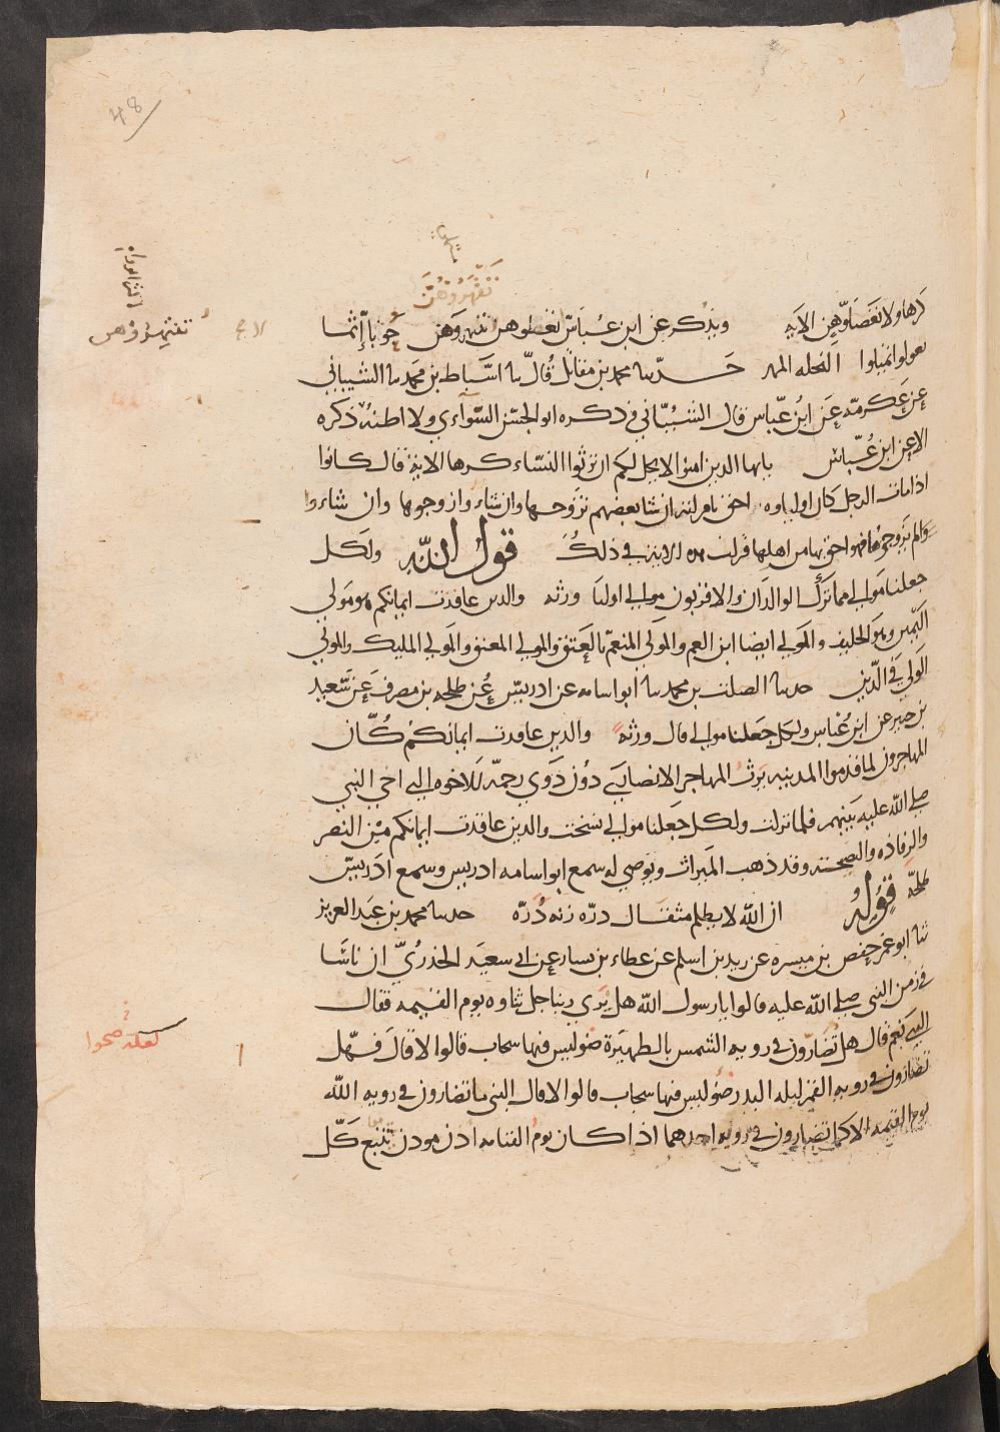 48
تقهروهن
كرها ولا تعضلوهن الايه ويذكر عن ابن عباس تعضلوهن تنهروهن حوبا إثما
تنتهروهن
تعولوا تميلوا النحله المهر حدثنا محمد بن مقاتل قال نا اسباط بن محمد نا الشيباني
عن عكرمة عن ابن عباس قال الشيباني وذكره ابو الحسن السوآءي ولا اظنه ذكره
الا عن ابن عباس يايها الذين امنوا لا يحل لكم ان ترثوا النساء كرها الاية قال كانوا
اذا مات الرجل كان اولياوه احق بامراته ان شا بعضهم تزوجها وان شاءوا زوجوها وان شاءوا
لم يزوجوها فهم احق بها من اهلها فنزلت هذه الاية في ذلك قول الله ولكل
جعلنا موالي مما ترك الوالدان والاقربون موالي اوليا ورثه والذين عاقدت ايمانكم هو مولي
اليمين وهو الحليف والمولي ايضا ابن العم والمولي المنعم بالعتق والمولي المعتق والمولي المليك والمولي
المولي في الدين حدثنا الصلت بن محمد نا ابو اسامه عن ادريس عن طلحه بن مصرف عن سعيد
بن جبير عن ابن عباس ولكل جعلنا موالي قال ورثه والذين عاقدت ايمانكم كان
المهاجرون لما قدموا المدينه يرث المهاجر الانصاري دون ذوي رحمه للاخوه التي اخي النبي
صلي الله عليه بينهم فلما نزلت ولكل جعلنا موالي نسخت والذين عاقدت ايمانكم من النصر
والرفاده والنصيحة وقد ذهب الميراث ويوصي له سمع ابو اسامه ادريس وسمع ادريس
طلحه قوله ان الله لا يظلم مثقال ذره زنه ذره حدثنا محمد بن عبد العزيز
نا ابو عمر حفص بن ميسره عن زيد بن اسلم عن عطاء بن يسار عن ابي سعيد الخدري ان ناسا
في زمن النبي صلي الله عليه قالوا يا رسول الله هل نري ربنا جل ثناوه يوم القيمه فقال
النبي نعم قال هل تضارون في رويه الشمس بالظهيرة ضو ليس فيها سحاب قالوا لا قال فهل
تضارون في رويه القمر ليله البدر ضو ليس فيها سحاب قالوا لا قال النبي ما تضارون في رويه الله
يوم القيمه الا كما تضارون في رويه احدهما اذا كان يوم القيامه اذن موذن تتبع كل